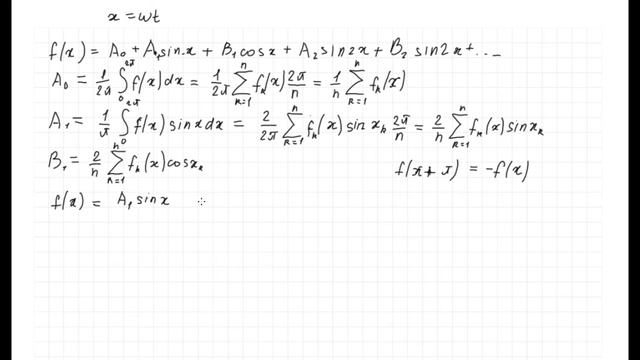 x = ωt
f(x) = A₀ + A₁sin x + B₁cos x + A₂ sin 2x + B₂ sin 2x + ...
A₀ = 1/2π ∫₀^2π f(x)dx = 1/2π ∑_{k=1}^n fₖ(x) 2π/n = 1/n ∑_{k=1}^n fₖ(x)
A₁ = 1/π ∫₀^2π f(x) sin x dx = 2/2π ∑_{k=1}^n fₖ(x) sin xₖ 2π/n = 2/n ∑_{k=1}^n fₖ(x) sin xₖ
B₁ = 2/n ∑_{k=1}^n fₖ(x) cos xₖ
f(x + π) = -f(x)
f(x) = A₁ sin x